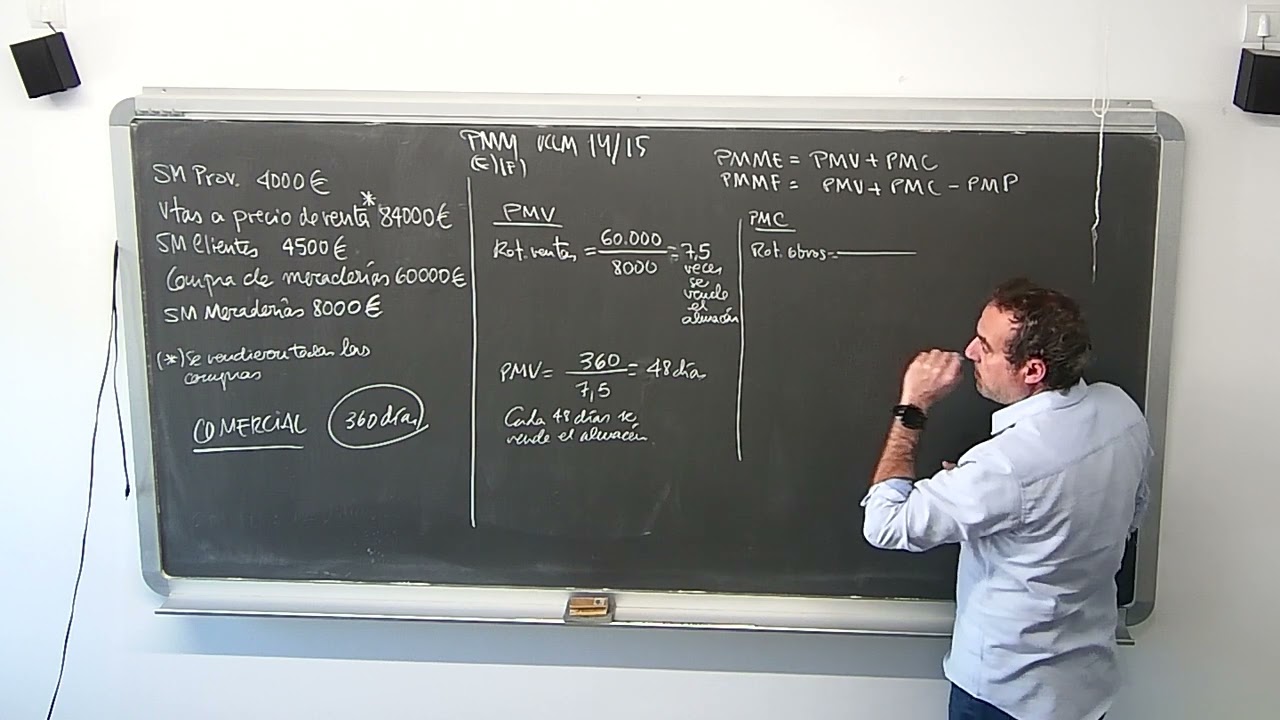 PMM UCLM 14/15
(E)(F)
SM Prov. 4000 €
Vtas a precio de venta* 84000 €
SM Clientes 4500 €
Compra de mercaderías 60000 €
SM Mercaderías 8000 €
(*) Se vendieron todas las
compras
COMERCIAL 360 días
PMV
Rot. ventas = 60.000 / 8000 = 7,5
veces
se
vende
el
almacén
PMV = 360 / 7,5 = 48 días
Cada 48 días se
vende el almacén.
PMME = PMV + PMC
PMMF = PMV + PMC - PMP
PMC
Rot. cobros =